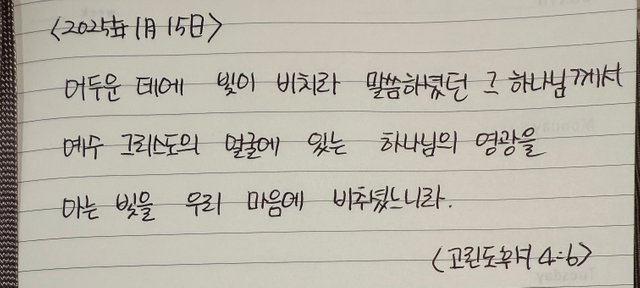 <2025年 1月 15日>
어두운 데에 빛이 비치라 말씀하셨던 그 하나님께서
예수 그리스도의 얼굴에 있는 하나님의 영광을
아는 빛을 우리 마음에 비추셨느니라.
(고린도후서 4:6)